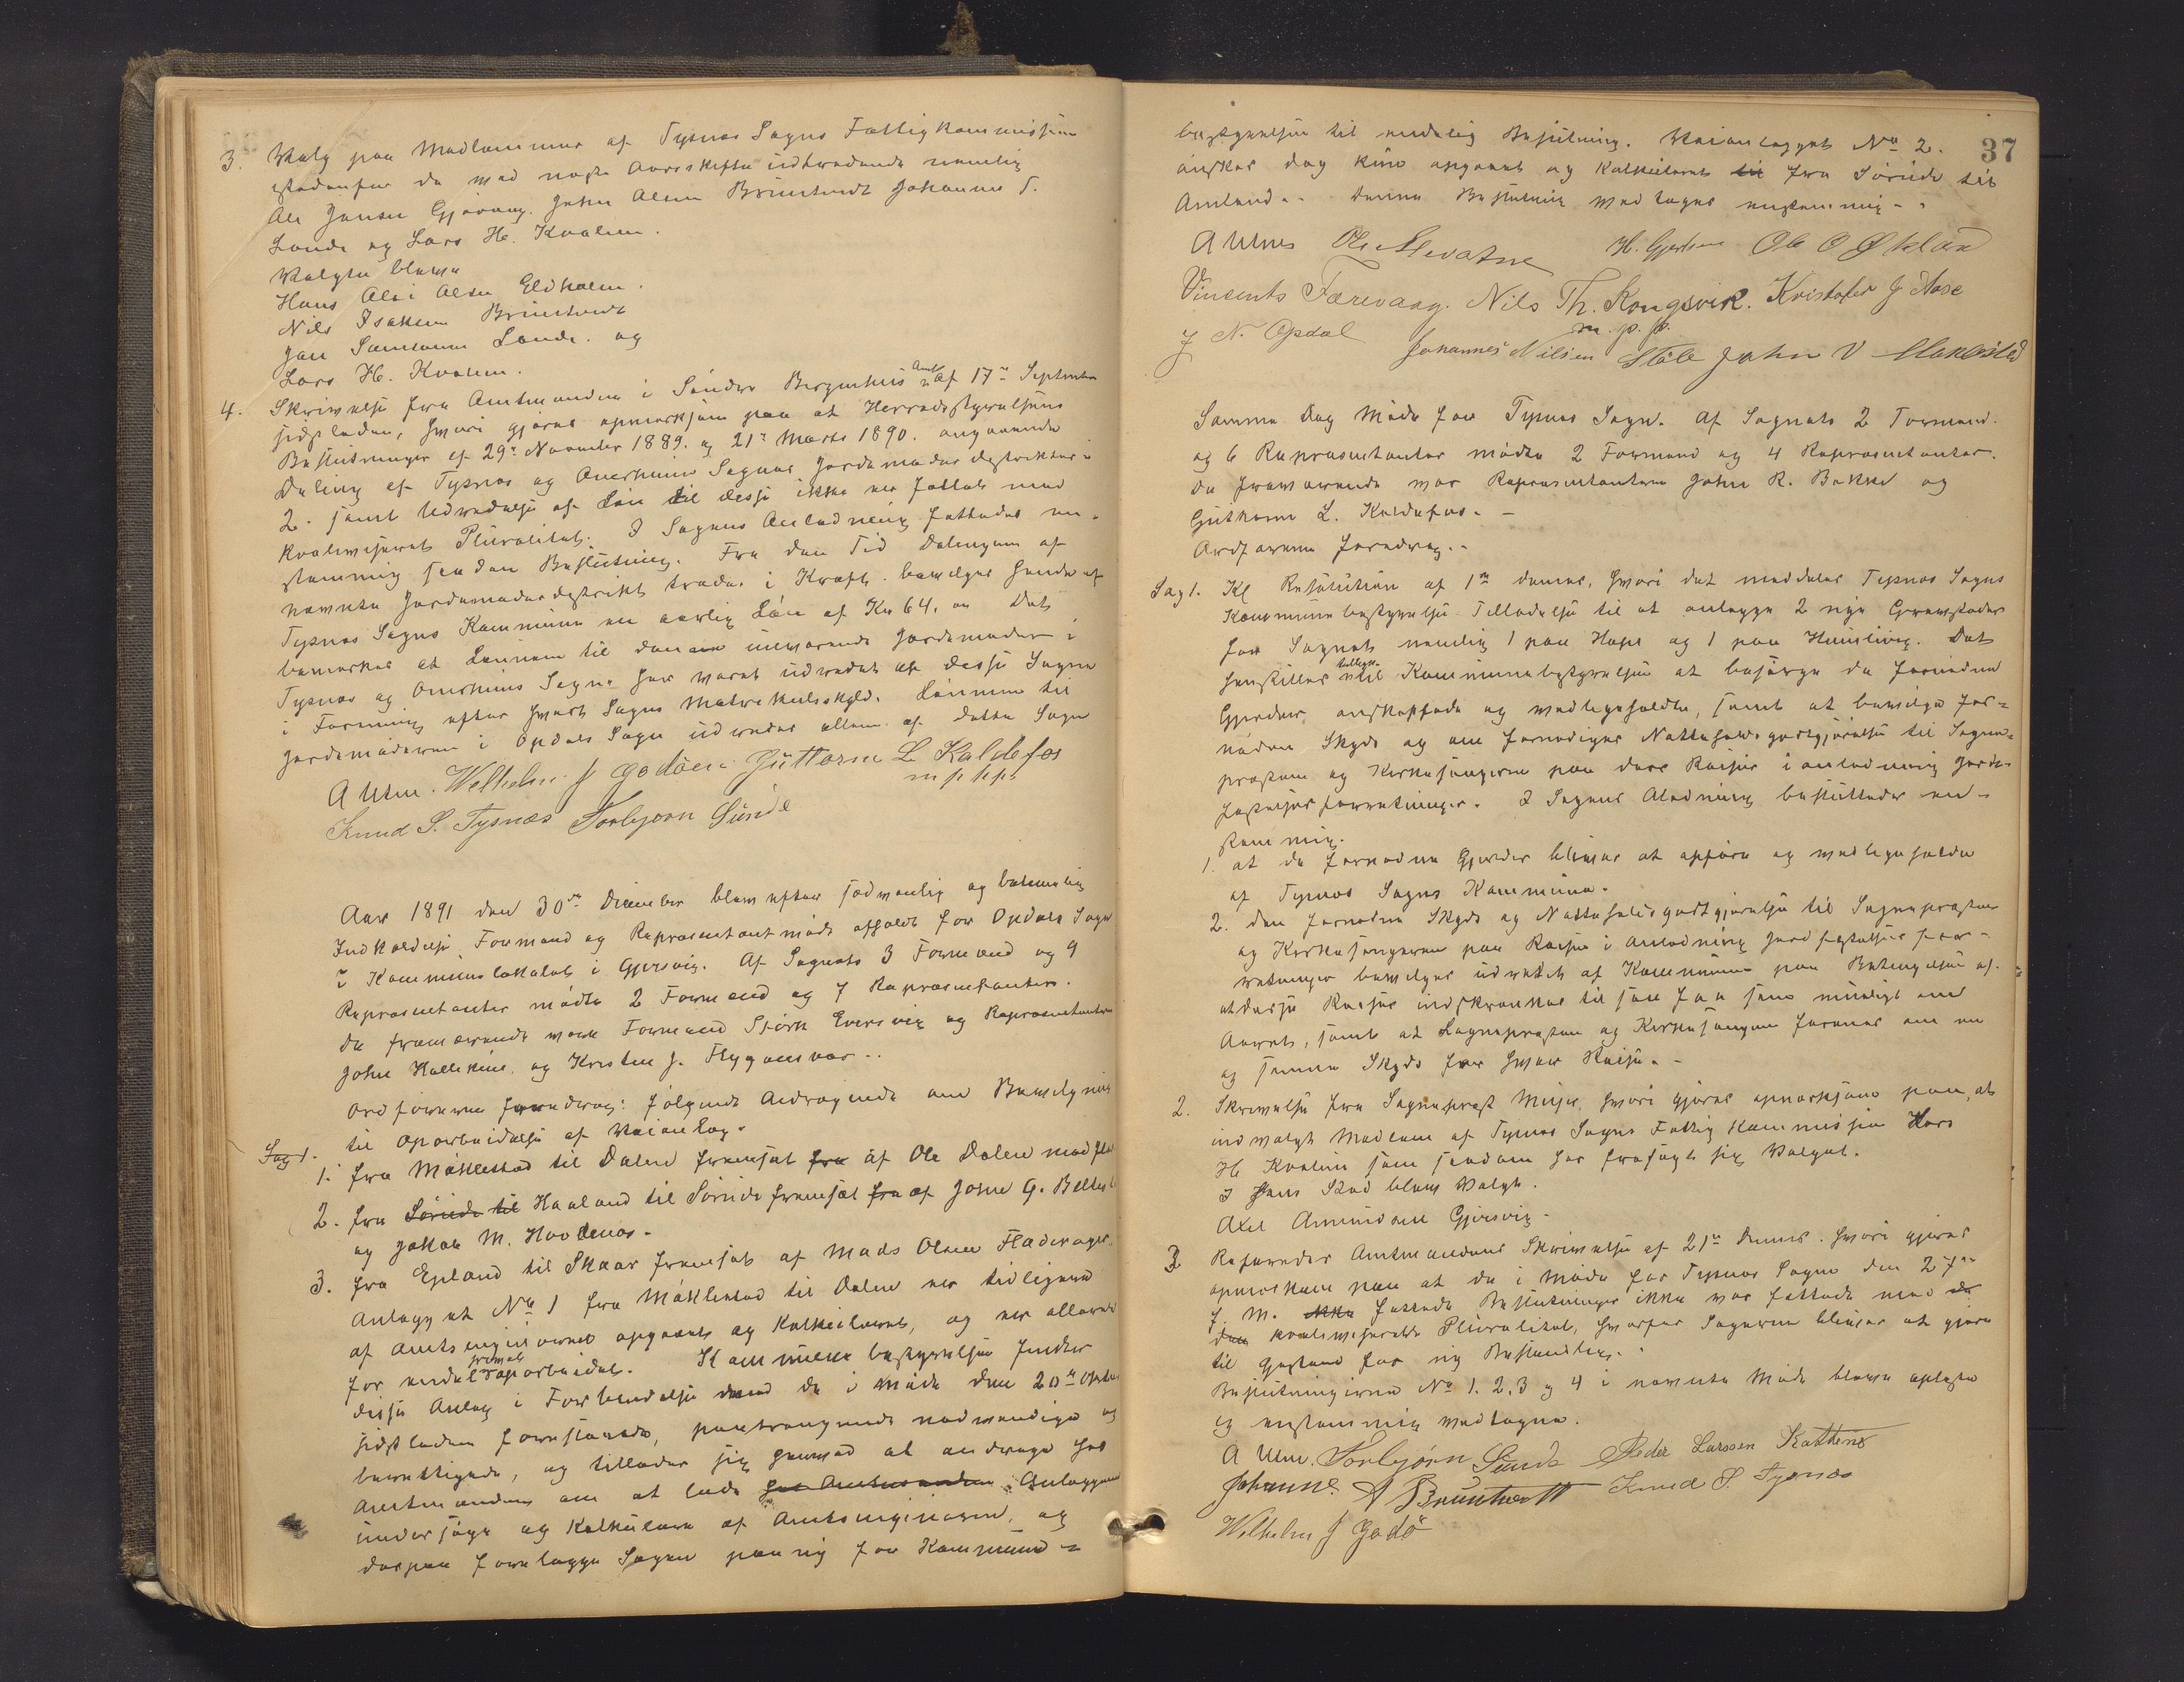 3. Valg paa Medlemmer af Tysnes Sogns Fattigkommission
istedenfor de med næste Aarsskifte udtrædende nemlig
Ole Jensen Gjøvaag. John Olsen Bruntvedt Johannes T.
Lande og Lars H. Kvalen.
Valgte bleve
Hans Olai Olsen Eldholm.
Nils Isaksen Bruntvedt
Jon Samsonsen Lande. og
Lars H. Kvalen.
4. Skrivelse fra Amtmanden i Søndre Bergenhus Amt af 17de September
sidstleden, hvori gjøres opmerksom paa at Herredsstyrelsens
Beslutninger af 29de November 1889. og 21de Marts 1890. angaaende
Deling af Tysnes og Onarheims Sognes Jordemoderdistrikter i
2. samt Udredelse af Løn til disse ikke er fattet med
kvalificeret Pluralitet. I Sagens Anledning fattedes en-
stemmig saadan Beslutning. Fra den Tid Delingen af
nævnte Jordemoderdistrikt træder i Kraft. bevilges hende af
Tysnes Sogns Kommune en aarlig Løn af Kr 64,00 Det
bemerkes at Lønnen til den nuværende Jordemoder i
Tysnes og Onarheims Sogne har været udredet af disse Sogne
i Forening efter hvert Sogns Matrikulskyld. Lønnen til
Jordemoderen i Opdals Sogn udredes allene af dette Sogn
A Ulven. Wilhelm J Godøen. Guttorm L. Kaldefos
m p p.
Knud S. Tysnæs Torbjørn Sunde
Aar 1891 den 30te December blev efter sædvanlig og betimelig
Indkaldelse Formand og Repræsentantmøde afholdt for Opdals Sogn
i Kommunelokalet i Gjersvig. Af Sognets 3 Formænd og 9
Repræsentanter mødte 2 Formænd og 7 Repræsentanter.
De fraværende vare Formand Sjørn Eversvig og Repræsentanterne
John Hallekiu. og Kristen J. Flygansvær..
Ordføreren foredrog: følgende Andragende om Bevilgning
til Oparbeidelse af Veianlæg.
Sag 1.
1. fra Møklestad til Dalen fremsat fra af Ole Dalen med flere
2. fra Søreide til Haaland til Søreide fremsat fra af John G. Beltestad
og Jakob M. Hovdenes.
3. fra Epland til Skaar fremsat af Mads Olsen Fladerager.
Anlægget No 1 fra Møklestad til Dalen er tidligere
af Amtsingeniøren opgaaet og kalkuleret, og er allerede
for endel fremad oparbeidet. Kommunebestyrelsen finder
disse Anlæg i Forbindelse med de i Møde den 20de Oktbr
sidstleden foreslaaede, paatrængende nødvendige og
berettigede, og tillader sig herved at andrage hos
Amtmanden om at lade hos Amtmanden Anlæggene
undersøge og kalkulere af Amtsingeniøren, og
derpaa forelægge Sagen paany for Kommune-
37
bestyrelsen til endelig Beslutning. Veianlægget No 2.
ønskes dog kun opgaaet og kalkuleret til fra Søreide til
Amland.. Denne Beslutning vedtages enstemmig..
A Ulvnes Ole Nevatne H. Gjersen Ole O Økland
Vincents Færevaag. Nils Th. Kongsvik. Kristofer J Aase
m. p. p.
J N. Opdal Johannes Nilsen Støle John V Møklestad
Samme Dag Møde for Tysnes Sogn. Af Sognets 2 Formænd.
og 6 Repræsentanter mødte 2 Formænd og 4 Repræsentanter.
De fraværende var Repræsentanterne John R. Bakke og
Guthorm L. Kaldefos. -
Ordføreren foredrog..
Sag 1. Kgl Resolution af 1ste dennes, hvori det meddeles Tysnes Sogns
Kommunebestyrelse Tilladelse til at anlægge 2 nye Gravsteder
for Sognet nemlig 1 paa Hope og 1 paa Humlevig. Det
henstilles tillige til Kommunebestyrelsen at besørge de fornødne
Gjerder anskaffede og vedligeholdte, samt at bevilge for-
nøden Skyds og om fornødiges Natteholdsgodtgjørelse til Sogne-
præsten og Kirkesangeren paa dere Reiser i anledning Jord-
fæstelsesforretninger. I Sagens Aledning besluttedes en-
stemmig.
1. at de fornødne Gjerder bliver at opføre og vedligeholde
af Tysnes Sogns Kommune.
2. Den fornødne Skyds og Natteholdsgodtgjørelse til Sognepræsten
og Kirkesangeren paa Reiser i anledning Jordfæstelsesfor-
retninger bevilges udredet af Kommunen paa Betingelse af.
at disse Reiser indskrænkes til saa faa som muligt om
Aaret, samt at Sognepræsten og Kirkesangeren forenes om en
og samme Skyds for hver Reise. -
2. Skrivelse fra Sognepræst Meyer, hvori gjøres opmerksom paa, at
indvalgt Medlem af Tysnes Sogns Fattigkommission Lars
H Kvalen som saadan har frasagt sig Valget.
I hans Sted blev valgt.
Axel Amundsen Gjersvig.
3 Refereres Amtmandens Skrivelse af 21de dennes. hvori gjøres
opmerksom paa at de i Møde for Tysnes Sogn den 27de
f. M. ikke fattede Beslutninger ikke var fattede med de
den kvalificerede Pluralitet, hvorfor Sagerne bliver at gjøre
til Gjestand for ny Behandling..
Beslutningerne No 1. 2, 3 og 4 i nævnte Møde bleve oplæste
og enstemmig vedtagne.
A Ulvn. Torbjørn Sunde Peder Larssen Kattenes
Johannes A Bruntvedt Knud S. Tysnæs
Wilhelm J Godø